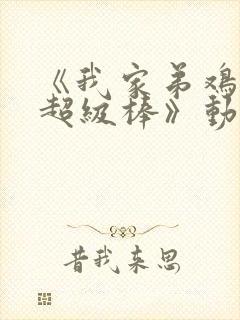 《我家弟鸡
超级棒》動
昔我来思